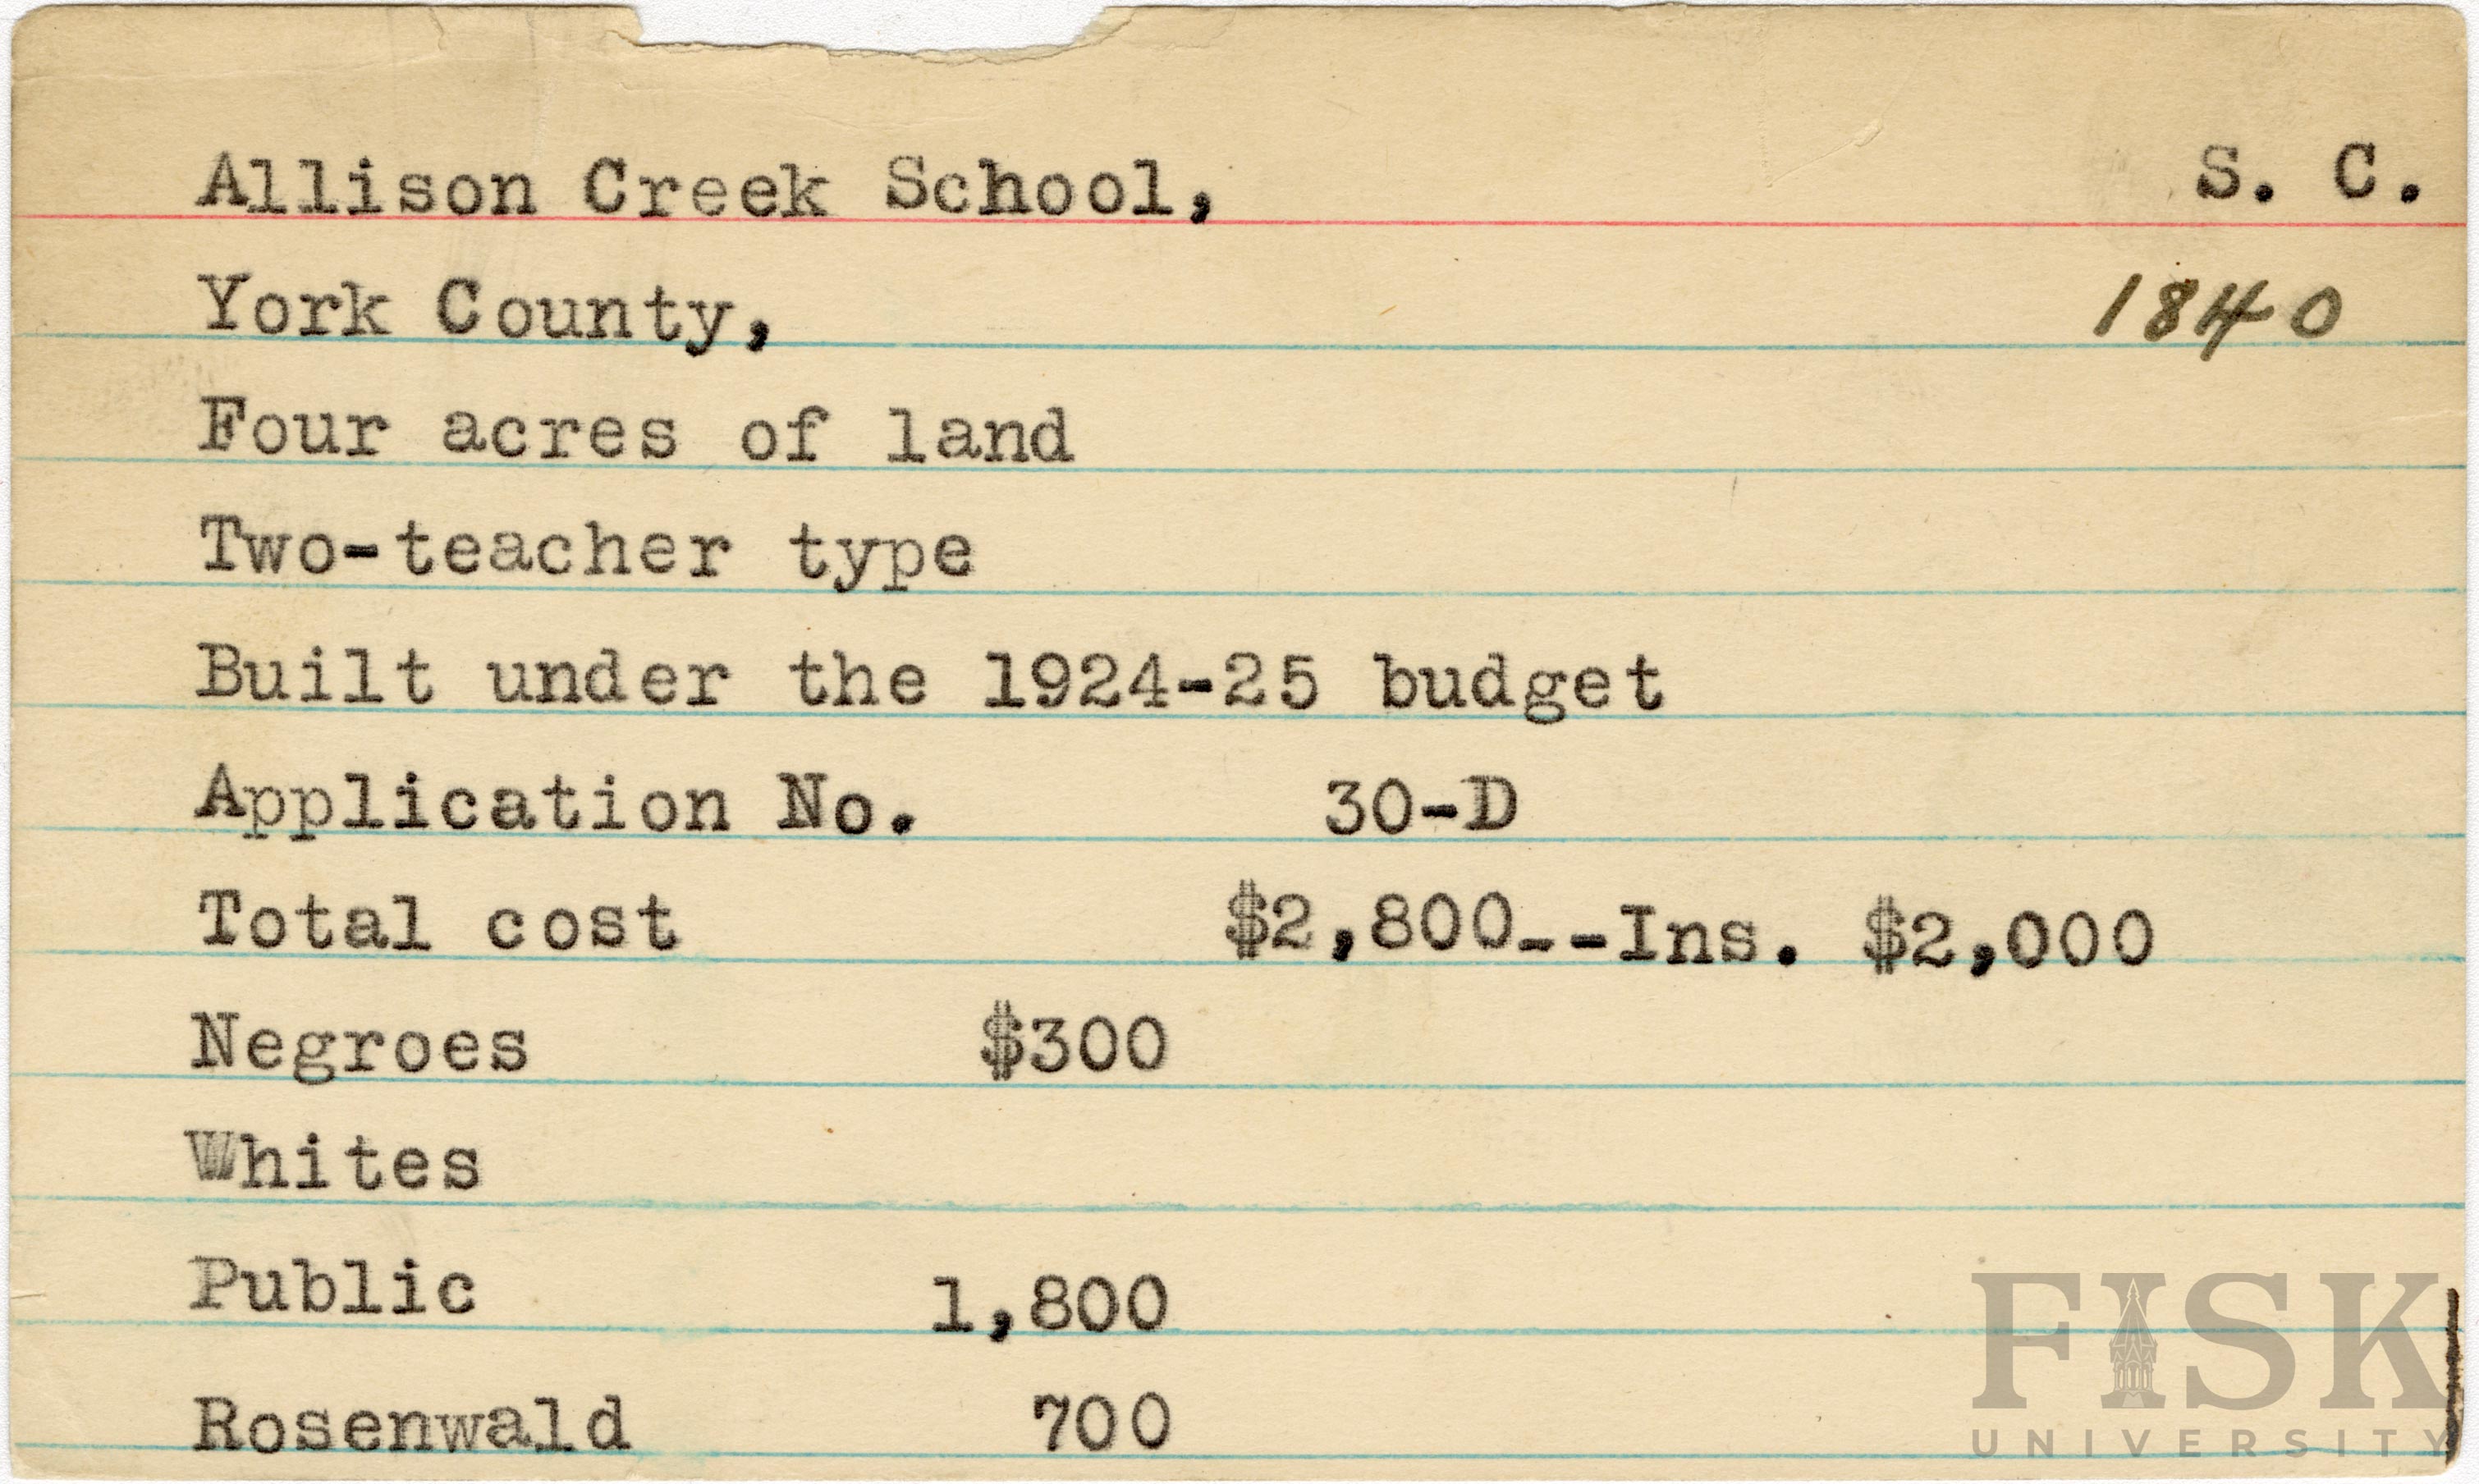 Allison Creek School, S. C.
York County, 1840
Four acres of land
Two-teacher type
Built under the 1924-25 budget
Application No. 30-D
Total cost $2,800--Ins. $2,000
Negroes $300
Whites
Public 1,800
Rosenwald 700
FISK
UNIVERSITY